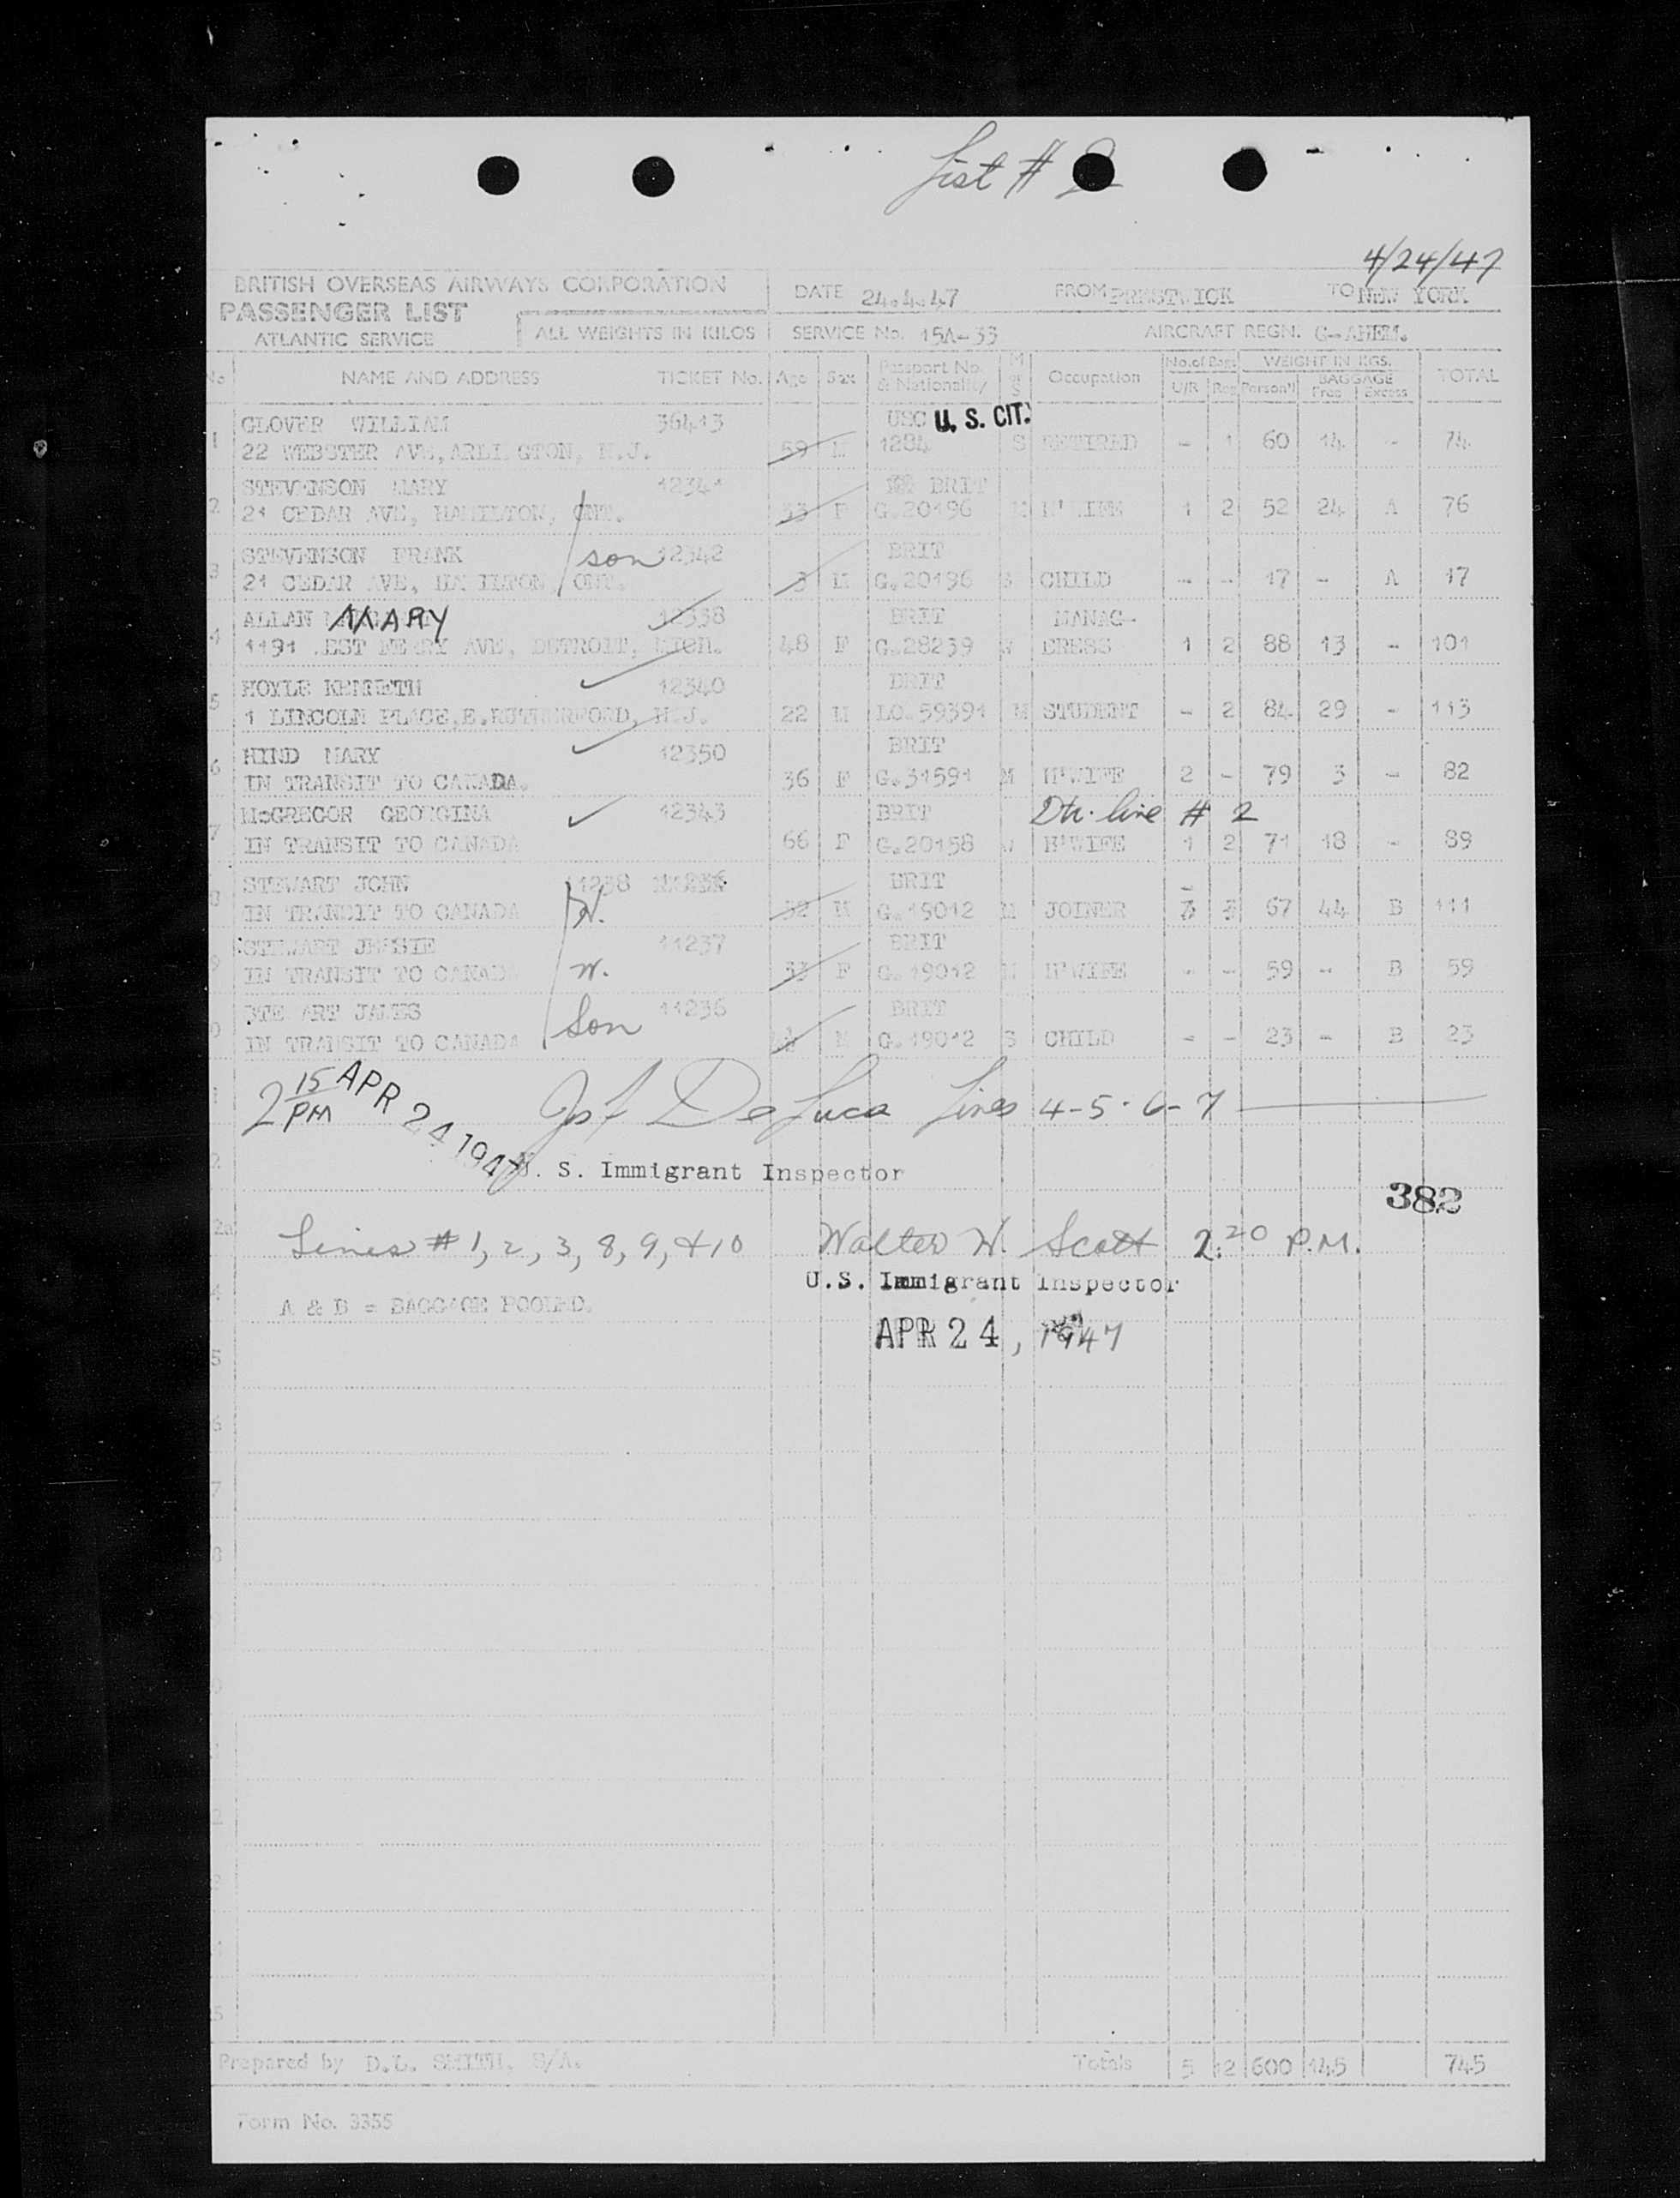 List #
4/24/47
BRITISH OVERSEAS AIRWAYS CORPORATION
PASSENGER LIST
ATLANTIC SERVICE
ALL WEIGHTS IN KILOS
DATE 24.4.47 FROM PRESTWICK TO NEW YORK
SERVICE No. 15A-33 AIRCRAFT REGN. G-AHEM.
No NAME AND ADDRESS TICKET No. Age Sex Passport No. & Nationality M W S Occupation No. of Bags U/R Reg WEIGHT IN KGS. Person'l BAGGAGE Free Excess TOTAL
GLOVER WILLIAM 36413 USC U. S. CIT.
1 22 WEBSTER AVE, ARLINGTON, N.J. 59 M 1284 S RETIRED - 1 60 14 - 74
STEVENSON MARY 12341 BRIT
2 21 CEDAR AVE, HAMILTON, ONT. 33 F G.20196 M H'WIFE 1 2 52 24 A 76
STEVENSON FRANK son 12342 BRIT
3 21 CEDAR AVE, HAMILTON ONT. 3 M G.20196 S CHILD - - 17 - A 17
ALLAN MARY 12338 BRIT MANAG-
4 1191 WEST AVE, DETROIT, MICH. 48 F G.28239 W ERESS 1 2 88 13 - 101
HOYLE KENNETH 12340 BRIT
5 1 LINCOLN PLACE, E. RUTHERFORD, N.J. 22 M LO.59391 M STUDENT - 2 84 29 - 113
HIND MARY 12350 BRIT
6 IN TRANSIT TO CANADA. 36 F G.31591 M H'WIFE 2 - 79 3 - 82
McGREGOR GEORGINA 12343 BRIT Dtr. line # 2
7 IN TRANSIT TO CANADA 66 F G.20158 W H'WIFE 1 2 71 18 - 89
STEWART JOHN 11238 BRIT
8 IN TRANSIT TO CANADA H. 32 M G.19012 M JOINER 3 67 44 B 111
STEWART JESSIE 11237 BRIT
9 IN TRANSIT TO CANADA W. 33 F G.19012 M H'WIFE - - 59 - B 59
STEWART JAMES 11236 BRIT
IN TRANSIT TO CANADA Son M G.19012 S CHILD - - 23 - B 23
2 15 PM APR 24 1947 Jos F DeLuca Lines 4-5-6-7
U. S. Immigrant Inspector
382
Lines # 1, 2, 3, 8, 9, & 10 Walter W. Scott 2:20 P.M.
U.S. Immigrant Inspector
A & B = BAGGAGE POOLED.
APR 24, 1947
Prepared by D.L. SMITH. S/A. Totals 5 12 600 145 745
Form No. 3355